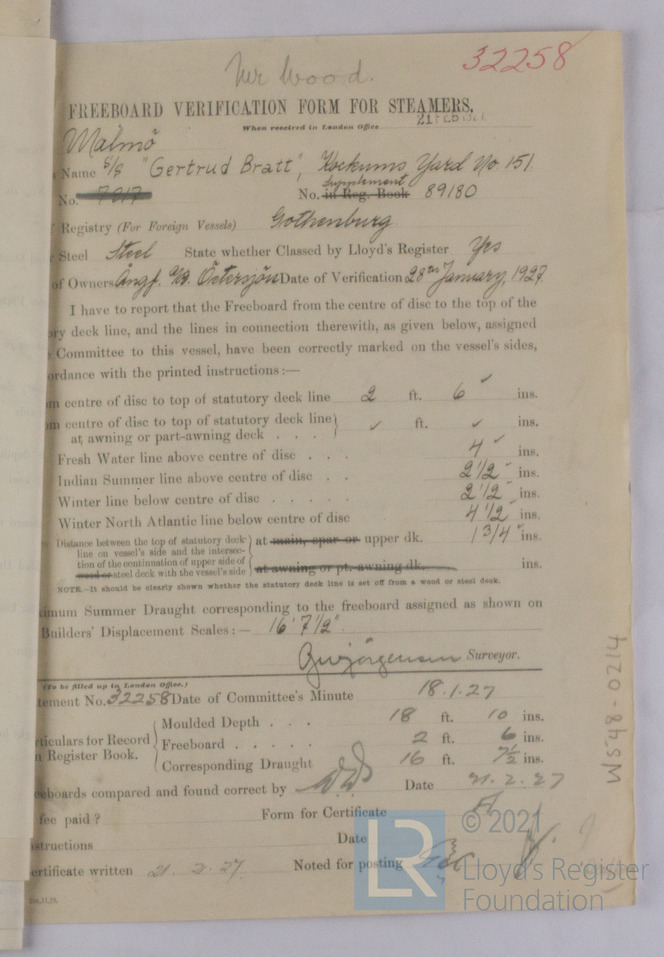 Mr Wood.
32258
FREEBOARD VERIFICATION FORM FOR STEAMERS.
When received in London Office
21 FEB
Malmö
Name S/S "Gertrud Bratt", Kockums Yard No 151
Supplement
No. 7017 No. in Reg. Book 89180
Registry (For Foreign Vessels) Gothenburg
Steel Steel State whether Classed by Lloyd's Register Yes
of Owners Ångf. A/B. Östersjön Date of Verification 28th January, 1927
I have to report that the Freeboard from the centre of disc to the top of the
ory deck line, and the lines in connection therewith, as given below, assigned
Committee to this vessel, have been correctly marked on the vessel's sides,
ordance with the printed instructions :—
m centre of disc to top of statutory deck line 2 ft. 6 ins.
m centre of disc to top of statutory deck line} ft. ins.
at, awning or part-awning deck . . .
Fresh Water line above centre of disc . . . 4 ins.
Indian Summer line above centre of disc . . 2 1/2 ins.
Winter line below centre of disc . . . . . 2 1/2 ins.
Winter North Atlantic line below centre of disc 4 1/2 ins.
Distance between the top of statutory deck
line on vessel's side and the intersec-
tion of the continuation of upper side of
wood or steel deck with the vessel's side
at main, spar or upper dk. 1 3/4 ins.
at awning or pt. awning dk. ins.
NOTE.—It should be clearly shown whether the statutory deck line is set off from a wood or steel deck.
ximum Summer Draught corresponding to the freeboard assigned as shown on
Builders' Displacement Scales :— 16' 7 1/2"
Surveyor.
(To be filled up in London Office.)
tement No. 32258 Date of Committee's Minute 18.1.27
Moulded Depth . . . 18 ft. 10 ins.
rticulars for Record
n Register Book.
Freeboard . . . . . 2 ft. 6 ins.
Corresponding Draught 16 ft. 7 1/2 ins.
eeboards compared and found correct by Date 21.2.27
fee paid ? Form for Certificate
structions Date
ertificate written 21.2.27 Noted for posting
W548-0214
LR
© 2021
Lloyd's Register
Foundation